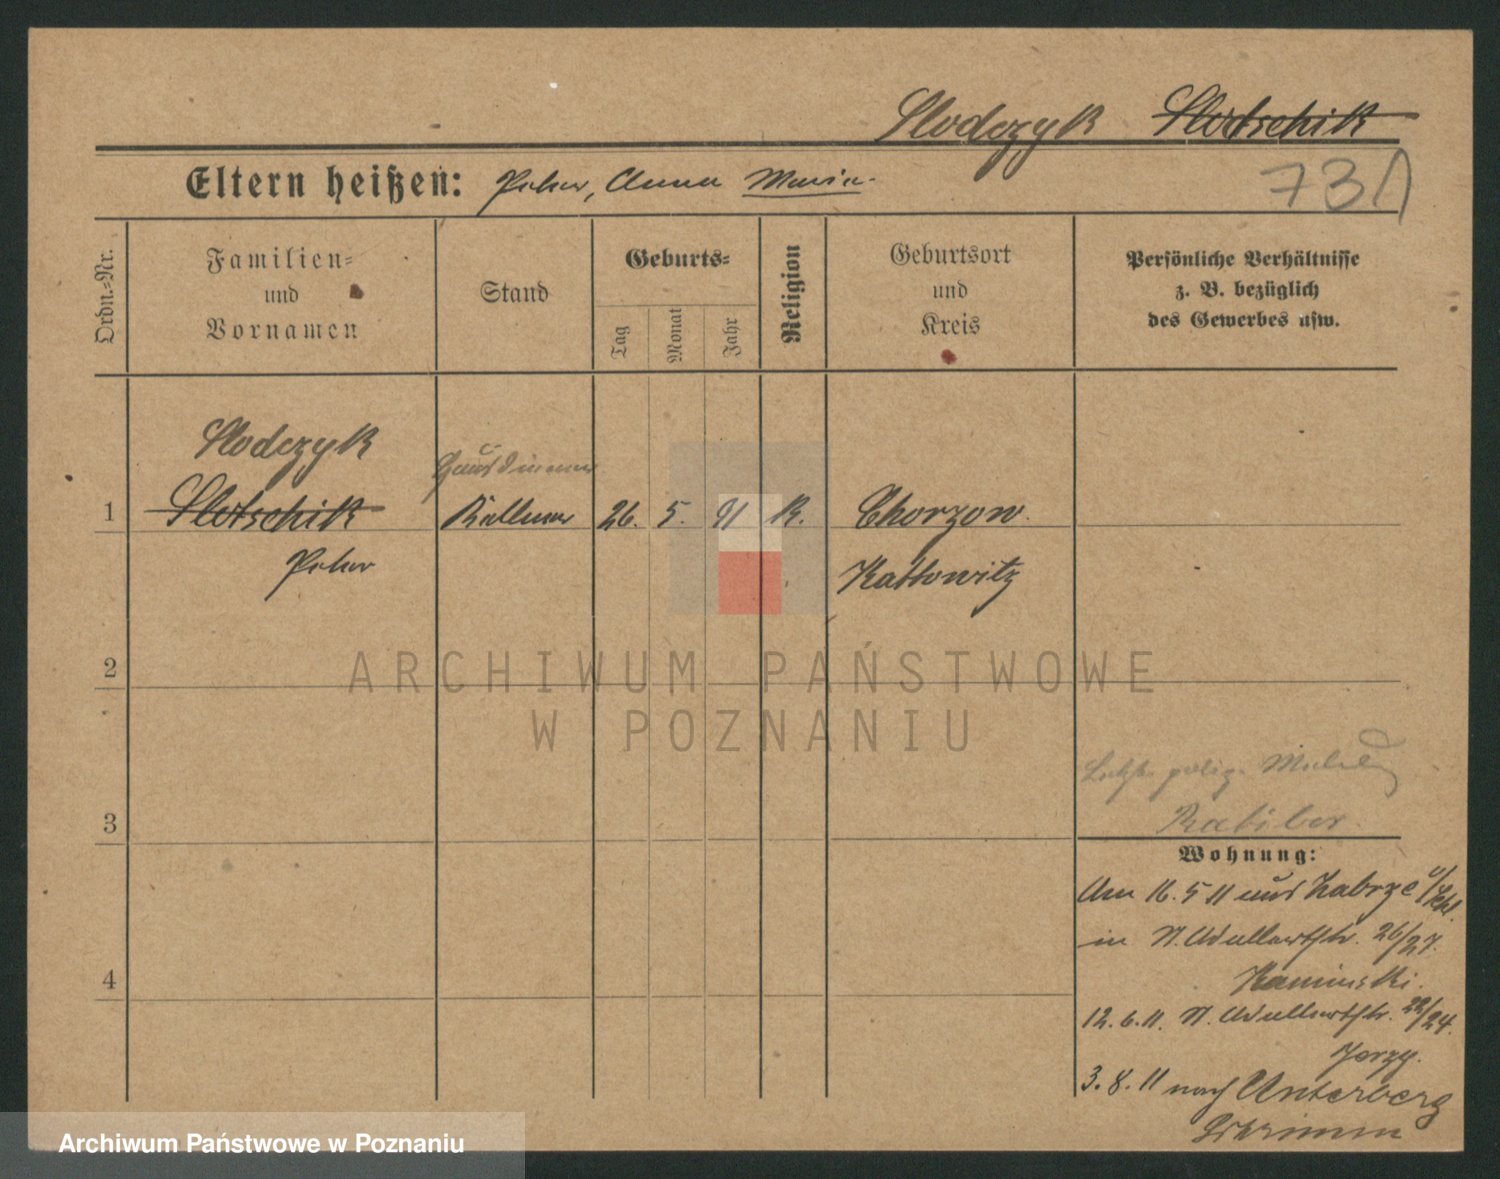 Slodczyk Slotschik
731
Eltern heißen: Peter, Anna Maria
Ordn.-Nr.
Familien-
und
Vornamen
Stand
Geburts-
Tag
Monat
Jahr
Religion
Geburtsort
und
Kreis
Persönliche Verhältnisse
z. B. bezüglich
des Gewerbes usw.
Slodczyk
Hausdiener
1 Slotschik Kellner 26. 5. 91 K. Chorzow
Peter Kattowitz
2
ARCHIWUM PAŃSTWOWE
W POZNANIU
Letzte poliz. Meldung
3 Ratibor
Wohnung:
Am 16. 5 11 aus Zabrze
in 26/27.
4 Kaminski.
12. 6. 11. 22/24.
Jerzy.
3. 8. 11 nach Unterberg
Schrimm
Archiwum Państwowe w Poznaniu